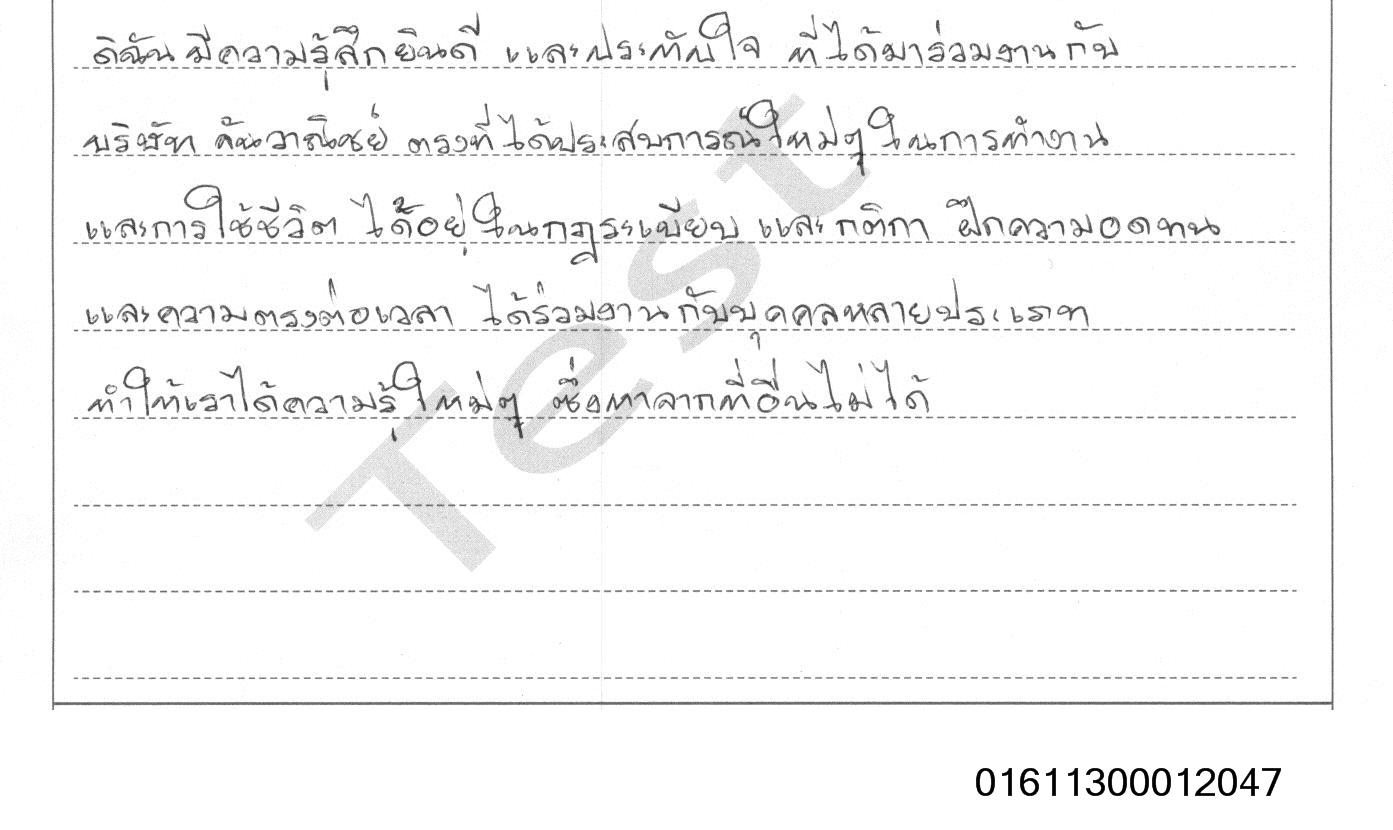 ดิฉันมีความรู้สึกยินดี และประทับใจ ที่ได้มาร่วมงานกับ
บริษัท ค้นวาณิชย์ ตรงที่ได้ประสบการณ์ใหม่ๆ ในการทำงาน
และการใช้ชีวิต ได้อยู่ในกฎระเบียบ และกติกา ฝึกความอดทน
และความตรงต่อเวลา ได้ร่วมงานกับบุคคลหลายประเภท
ทำให้เราได้ความรู้ใหม่ๆ ซึ่งหาจากที่อื่นไม่ได้
Test
01611300012047